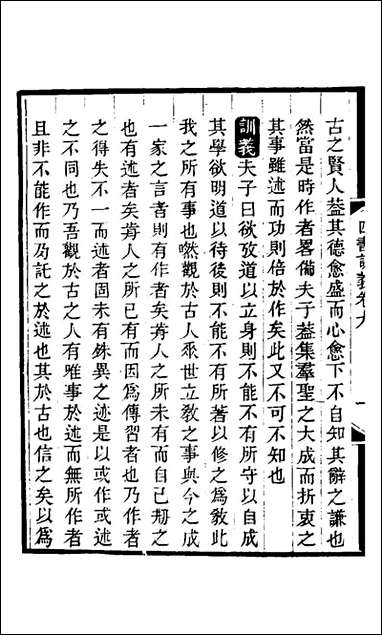 古之賢人葢其德愈盛而心愈下不自知其辭之謙也
然當是時作者畧備夫子葢集羣聖之大成而折衷之
其事雖述而功則倍於作矣此又不可不知也
訓義夫子曰欲攷道以立身則不能不有所守以自成
其學欲明道以待後則不能不有所著以修之爲敎此
我之所有事也嘫觀於古人眾世立敎之事與今之成
一家之言者則有作者矣前人之所未有而自己刱之
也有述者矣前人之所已有而因爲傳習者也乃作者
之得失不一而述者固未有殊異之迹是以或作或述
之不同也乃吾觀於古之人有唯事於述而無所作者
且非不能作而爲託之於述也其於古也信之矣以爲
四書訓義卷九
一